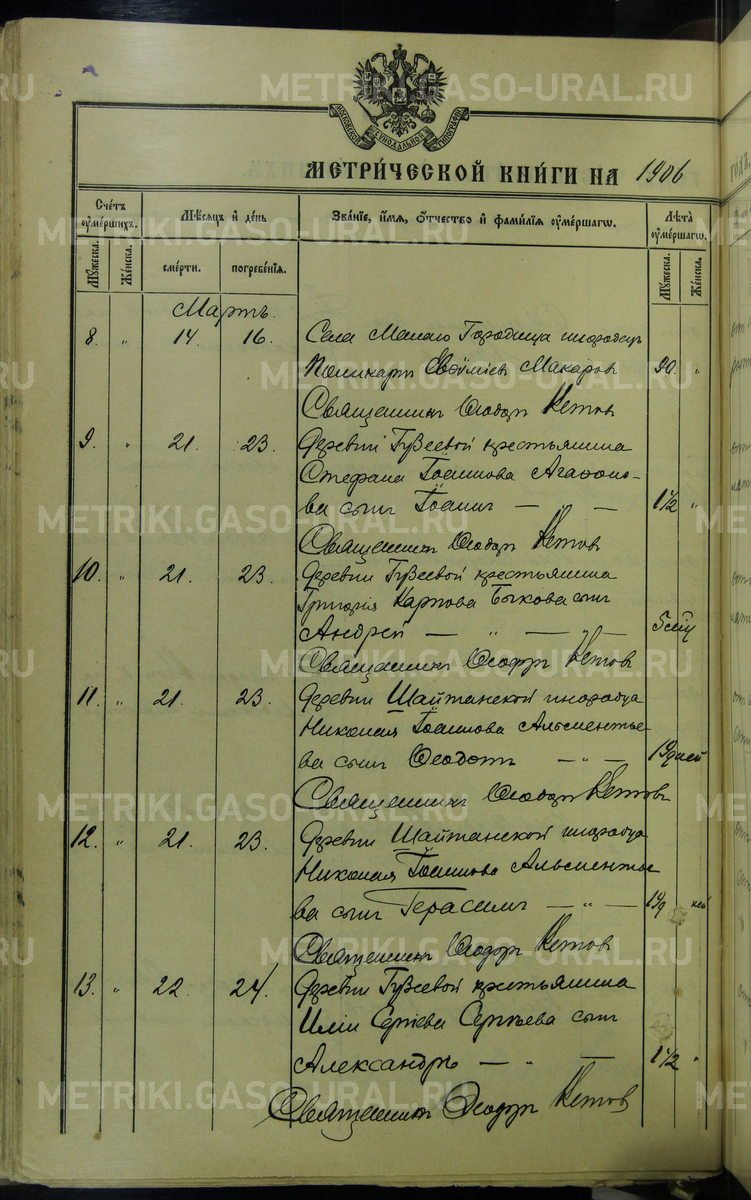 METRIKI.GASO-URAL.RU
МОСКОВСКОЙ СѴНОДАЛЬНОЙ ТИПОГРАФІИ
МЕТРИЧЕСКОЙ КНИГИ НА 1906
Счетъ умершихъ. Мѣсяцъ и день Званіе, имя, отчество и фамилія умершаго. Лѣта умершаго.
Мужеска. Женска. смерти. погребенія. Мужеска. Женска.
Мартъ.
8. " 14. 16. Села Малаго Городища инородецъ
Поликарпъ Евѳиміевъ Макаровъ 90. "
Священникъ Ѳеодоръ Кетовъ
9. " 21. 23. Деревни Гузеевой крестьянина
Стефана Іоаннова Агаѳоно-
ва сынъ Іоаннъ — " — 1½ "
Священникъ Ѳеодоръ Кетовъ
10. " 21. 23. Деревни Гузеевой крестьянина
Григорія Карпова Быкова сынъ
Андрей — " — " — 5 мѣц
Священникъ Ѳеодоръ Кетовъ
11. " 21. 23. Деревни Шайтанской инородца
Николая Іоаннова Альементье-
ва сынъ Ѳеодотъ — " — дней
Священникъ Ѳеодоръ Кетовъ
12. " 21. 23. Деревни Шайтанской инородца
Николая Іоаннова Альементье-
ва сынъ Герасимъ — " —
Священникъ Ѳеодоръ Кетовъ
13. " 22. 24. Деревни Гузеевой крестьянина
Иліи Сергіева Сергѣева сынъ
Александръ — " — 1½ "
Священникъ Ѳеодоръ Кетовъ